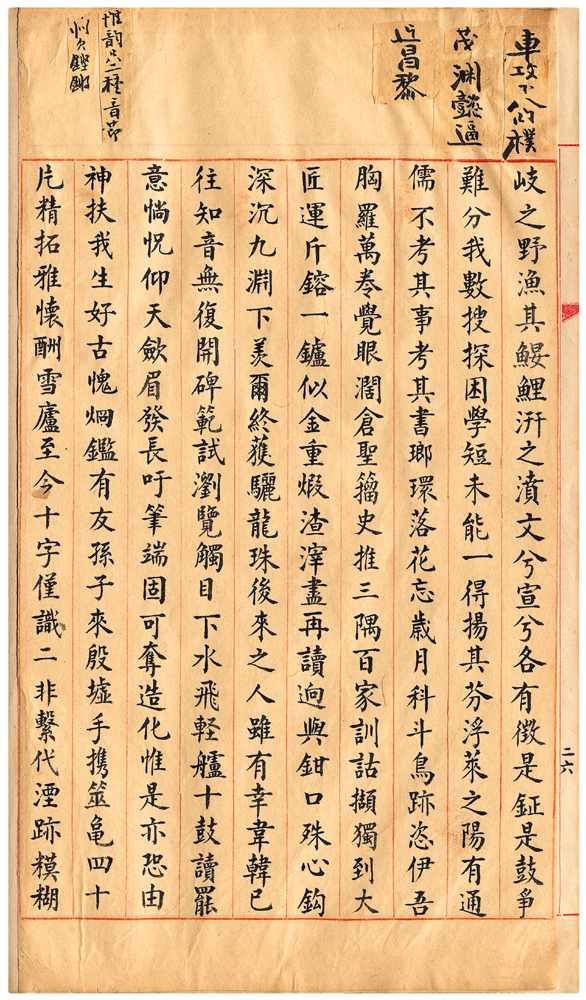 車攻下八的樸
茂渊懿逼
近昌黎
惟韵只二種音节
似欠鏗鏘
岐之野漁其鰋鯉汧之濆文兮宣兮各有徵是鉦是鼓爭
難分我數搜探困學短未能一得揚其芬浮萊之陽有通
儒不考其事考其書瑯環落花忘歲月科斗鳥跡恣伊吾
胸羅萬卷覺眼濶倉聖籀史推三隅百家訓詁擷獨到大
匠運斤鎔一鑪似金重煆渣滓盡再讀逈與鉗口殊心鈎
深沉九淵下羡爾終獲驪龍珠後來之人雖有幸韋韓已
往知音無復開碑範試瀏覽觸目下水飛軽艫十鼓讀罷
意惝怳仰天歛眉發長吁筆端固可奪造化惟是亦恐由
神扶我生好古愧烱鑑有友孫子來殷墟手携筮亀四十
片精拓雅懷酬雪廬至今十字僅識二非繫代湮跡糢糊
二六